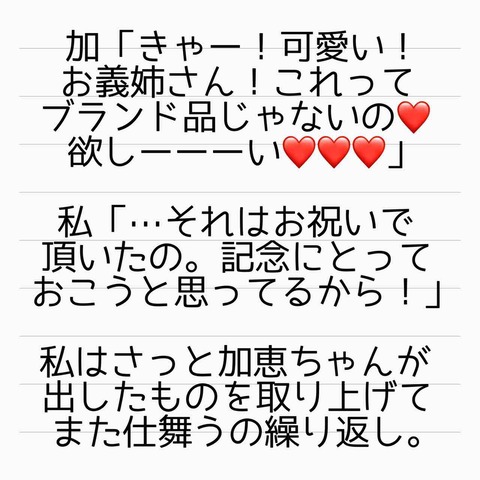 加「きゃー！可愛い！
お義姉さん！これって
ブランド品じゃないの❤️
欲しーーーい❤️❤️❤️」
私「…それはお祝いで
頂いたの。記念にとって
おこうと思ってるから！」
私はさっと加恵ちゃんが
出したものを取り上げて
また仕舞うの繰り返し。